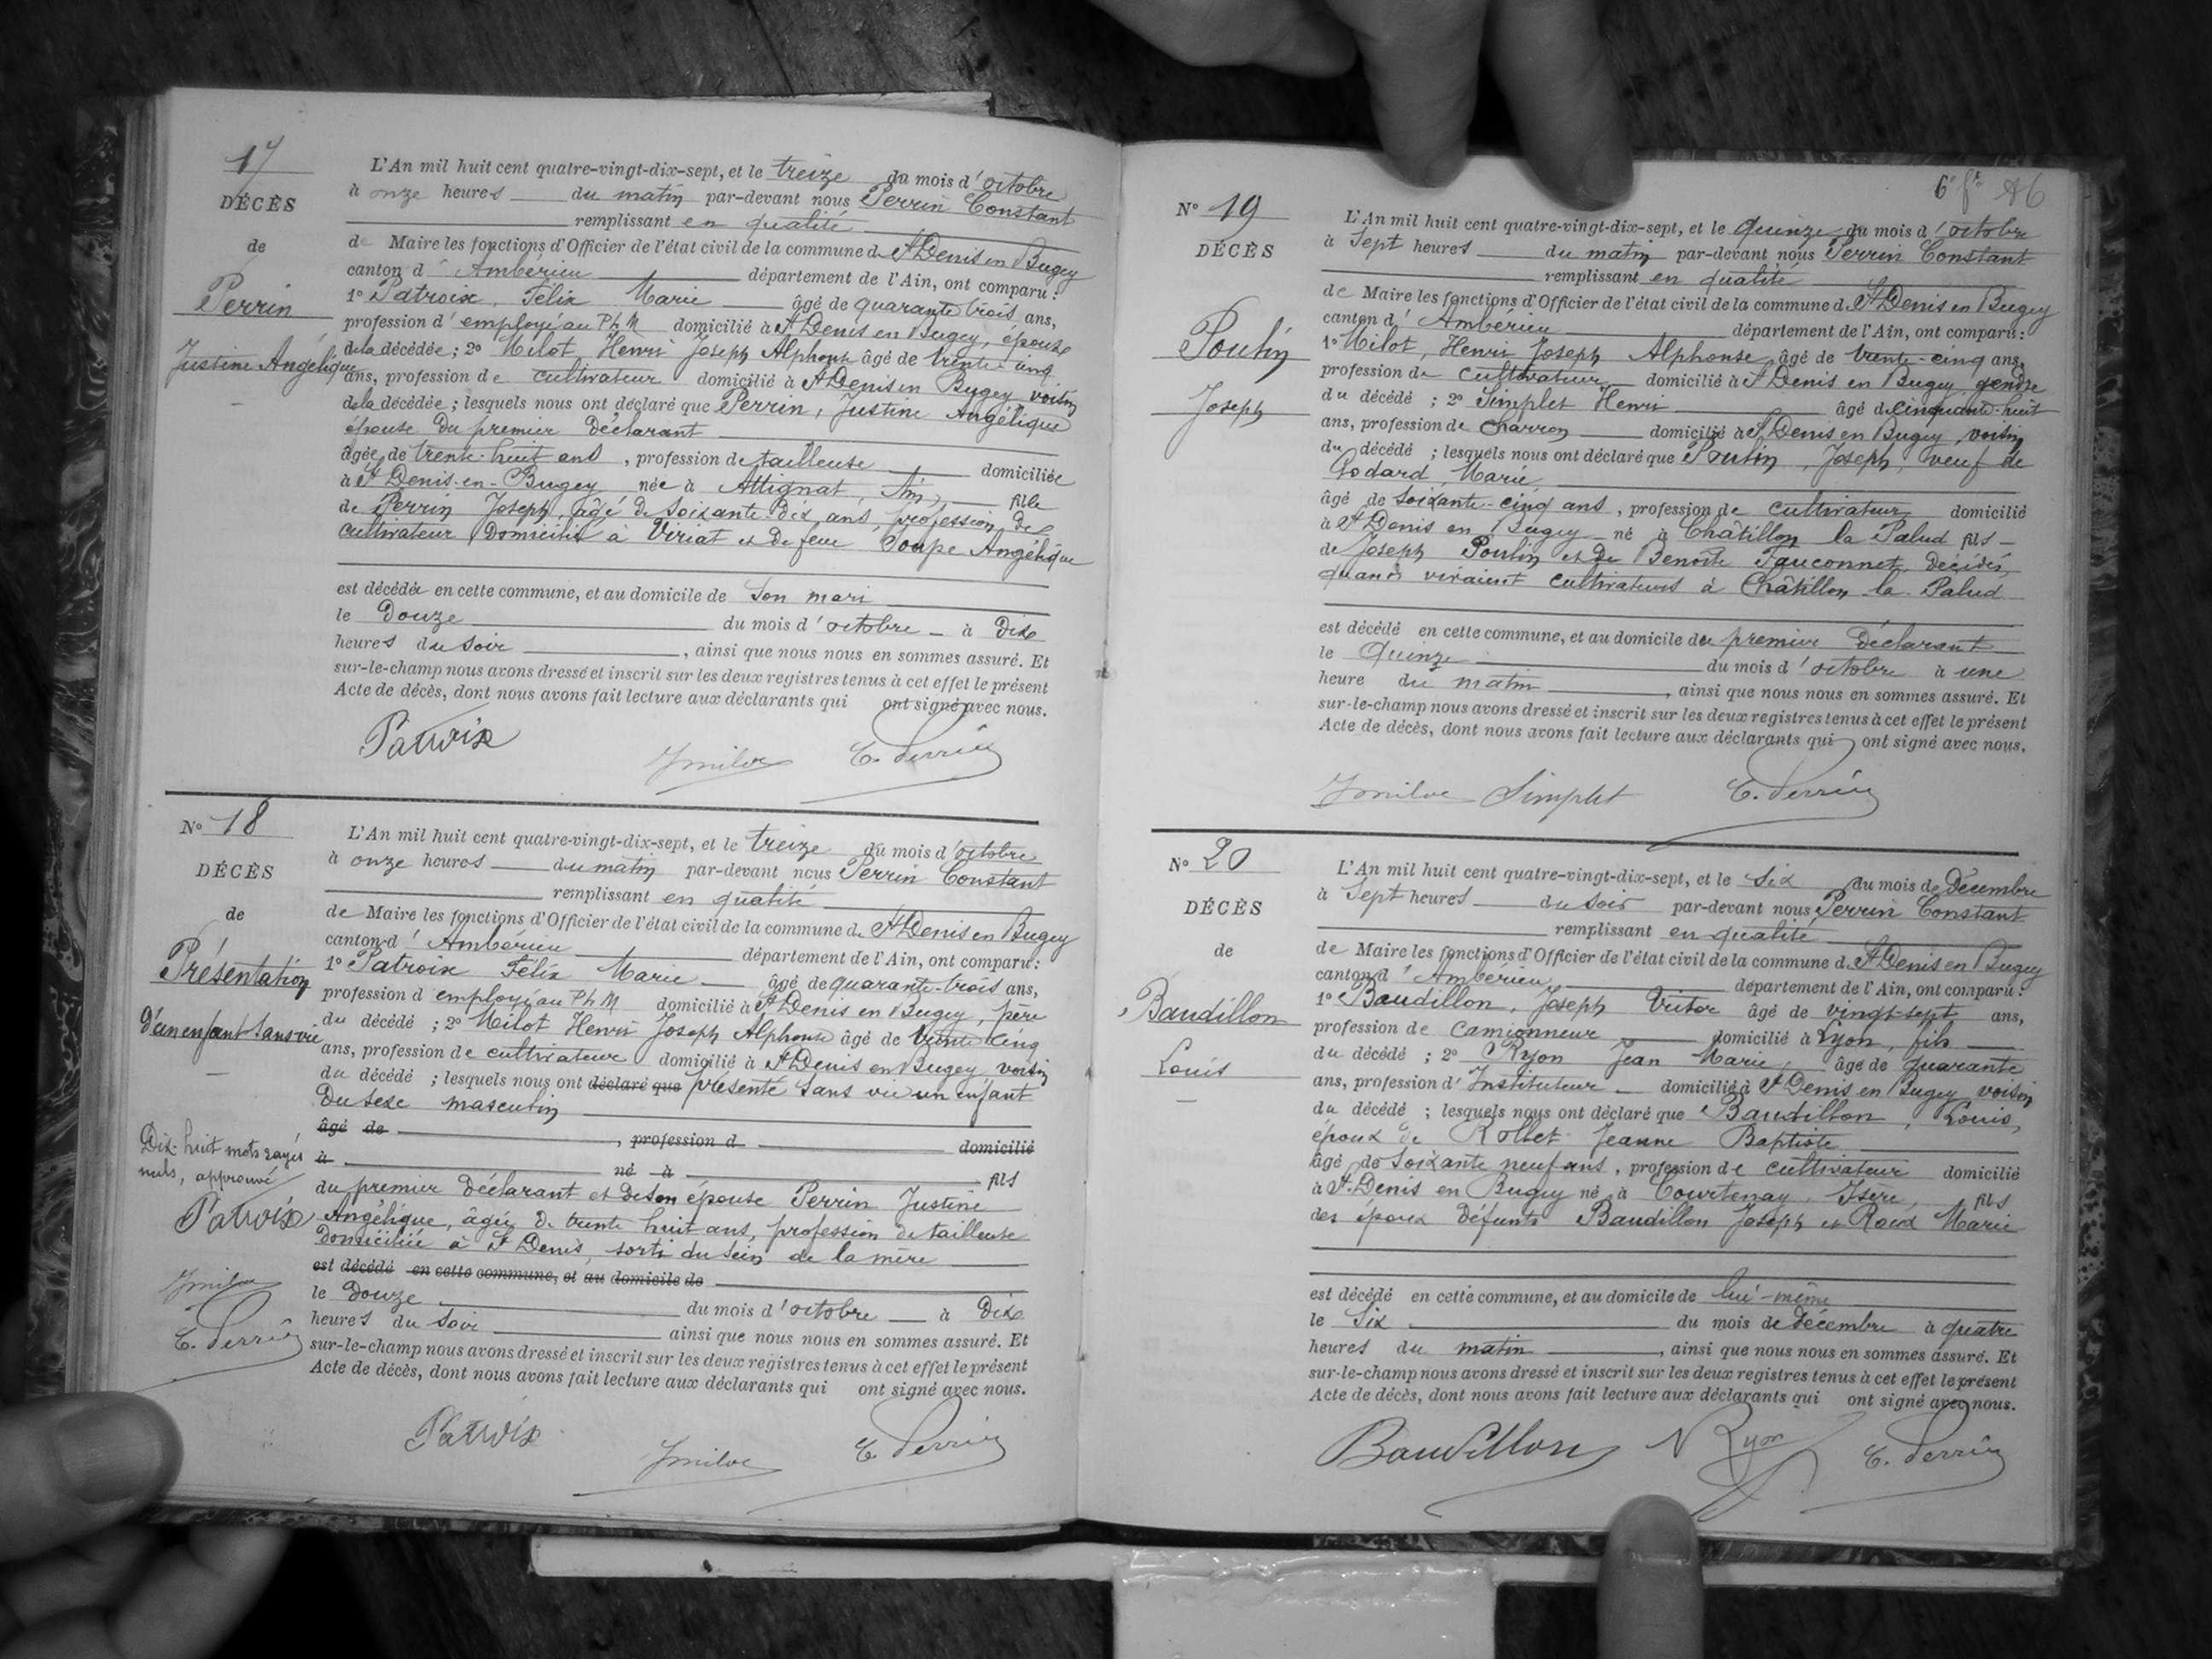 17
DÉCÈS
de
Perrin
Justine Angélique
L'An mil huit cent quatre-vingt-dix-sept, et le treize du mois d'octobre
à onze heures du matin par-devant nous Perrin Constant
remplissant en qualité
de Maire les fonctions d'Officier de l'état civil de la commune de St Denis en Bugey
canton d'Ambérieu département de l'Ain, ont comparu :
1º Patroix, Félix Marie âgé de quarante trois ans,
profession d'employé au domicilié à St Denis en Bugey, époux
de la décédée ; 2º Milot Henri Joseph Alphonse âgé de trente-cinq
ans, profession de cultivateur domicilié à St Denis en Bugey voisin
de la décédée ; lesquels nous ont déclaré que Perrin, Justine Angélique
épouse du premier déclarant
âgée de trente-huit ans, profession de tailleuse domiciliée
à St Denis-en-Bugey née à Attignat, Ain, fille
de Perrin Joseph, âgé de soixante-dix ans, profession de
cultivateur domicilié à Viriat et de feue Angélique
est décédée en cette commune, et au domicile de son mari
le douze du mois d'octobre à dix
heures du soir, ainsi que nous nous en sommes assuré. Et
sur-le-champ nous avons dressé et inscrit sur les deux registres tenus à cet effet le présent
Acte de décès, dont nous avons fait lecture aux déclarants qui ont signé avec nous.
Patroix Hmilot C. Perrin
Nº 18
DÉCÈS
de
Présentation
d'un enfant sans vie
L'An mil huit cent quatre-vingt-dix-sept, et le treize du mois d'octobre
à onze heures du matin par-devant nous Perrin Constant
remplissant en qualité
de Maire les fonctions d'Officier de l'état civil de la commune de St Denis en Bugey
canton d'Ambérieu département de l'Ain, ont comparu :
1º Patroix Félix Marie âgé de quarante-trois ans,
profession d'employé au domicilié à St Denis en Bugey, père
du décédé ; 2º Milot Henri Joseph Alphonse âgé de trente cinq
ans, profession de cultivateur domicilié à St Denis en Bugey voisin
du décédé ; lesquels nous ont déclaré que présenté sans vie un enfant
du sexe masculin
âgé de, profession d domicilié
à né à fils
du premier déclarant et de son épouse Perrin Justine
Angélique, âgée de trente huit ans, profession de tailleuse
domiciliée à St Denis, sorti du sein de la mère
est décédé en cette commune, et au domicile de
le douze du mois d'octobre à dix
heures du soir ainsi que nous nous en sommes assuré. Et
sur-le-champ nous avons dressé et inscrit sur les deux registres tenus à cet effet le présent
Acte de décès, dont nous avons fait lecture aux déclarants qui ont signé avec nous.
Dix-huit mots rayés
nuls, approuvé
Patroix
Hmilot
C. Perrin
Patroix Hmilot C. Perrin
46
Nº 19
DÉCÈS
Poulin
Joseph
L'An mil huit cent quatre-vingt-dix-sept, et le quinze du mois d'octobre
à sept heures du matin par-devant nous Perrin Constant
remplissant en qualité
de Maire les fonctions d'Officier de l'état civil de la commune d. St Denis en Bugey
canton d'Ambérieu département de l'Ain, ont comparu :
1º Milot, Henri Joseph Alphonse, âgé de trente-cinq ans,
profession de cultivateur domicilié à St Denis en Bugey gendre
du décédé ; 2º Simplet Henri âgé de cinquante-huit
ans, profession de charron domicilié à St Denis en Bugey, voisin
du décédé ; lesquels nous ont déclaré que Poulin, Joseph, veuf de
Godard, Marie
âgé de soixante-cinq ans, profession de cultivateur domicilié
à St Denis en Bugey né à Châtillon la Palud fils
de Joseph Poulin et de Benoîte Fauconnet, décédés,
quand vivaient cultivateurs à Châtillon-la-Palud
est décédé en cette commune, et au domicile du premier déclarant
le quinze du mois d'octobre à une
heure du matin, ainsi que nous nous en sommes assuré. Et
sur-le-champ nous avons dressé et inscrit sur les deux registres tenus à cet effet le présent
Acte de décès, dont nous avons fait lecture aux déclarants qui ont signé avec nous.
Hmilot Simplet C. Perrin
Nº 20
DÉCÈS
de
Baudillon
Louis
L'An mil huit cent quatre-vingt-dix-sept, et le six du mois de décembre
à sept heures du soir par-devant nous Perrin Constant
remplissant en qualité
de Maire les fonctions d'Officier de l'état civil de la commune d. St Denis en Bugey
canton d'Ambérieu département de l'Ain, ont comparu :
1º Baudillon, Joseph Victor âgé de vingt-sept ans,
profession de camionneur domicilié à Lyon, fils
du décédé ; 2º Ryon Jean Marie, âgé de quarante
ans, profession d'Instituteur domicilié à St Denis en Bugey voisin
du décédé ; lesquels nous ont déclaré que Baudillon, Louis,
époux de Rollet Jeanne Baptiste
âgé de soixante neuf ans, profession de cultivateur domicilié
à St. Denis en Bugey né à Courtenay, Isère, fils
des époux défunts Baudillon Joseph et Roux Marie
est décédé en cette commune, et au domicile de lui-même
le six du mois de décembre à quatre
heures du matin, ainsi que nous nous en sommes assuré. Et
sur-le-champ nous avons dressé et inscrit sur les deux registres tenus à cet effet le présent
Acte de décès, dont nous avons fait lecture aux déclarants qui ont signé avec nous.
Baudillon Ryon C. Perrin